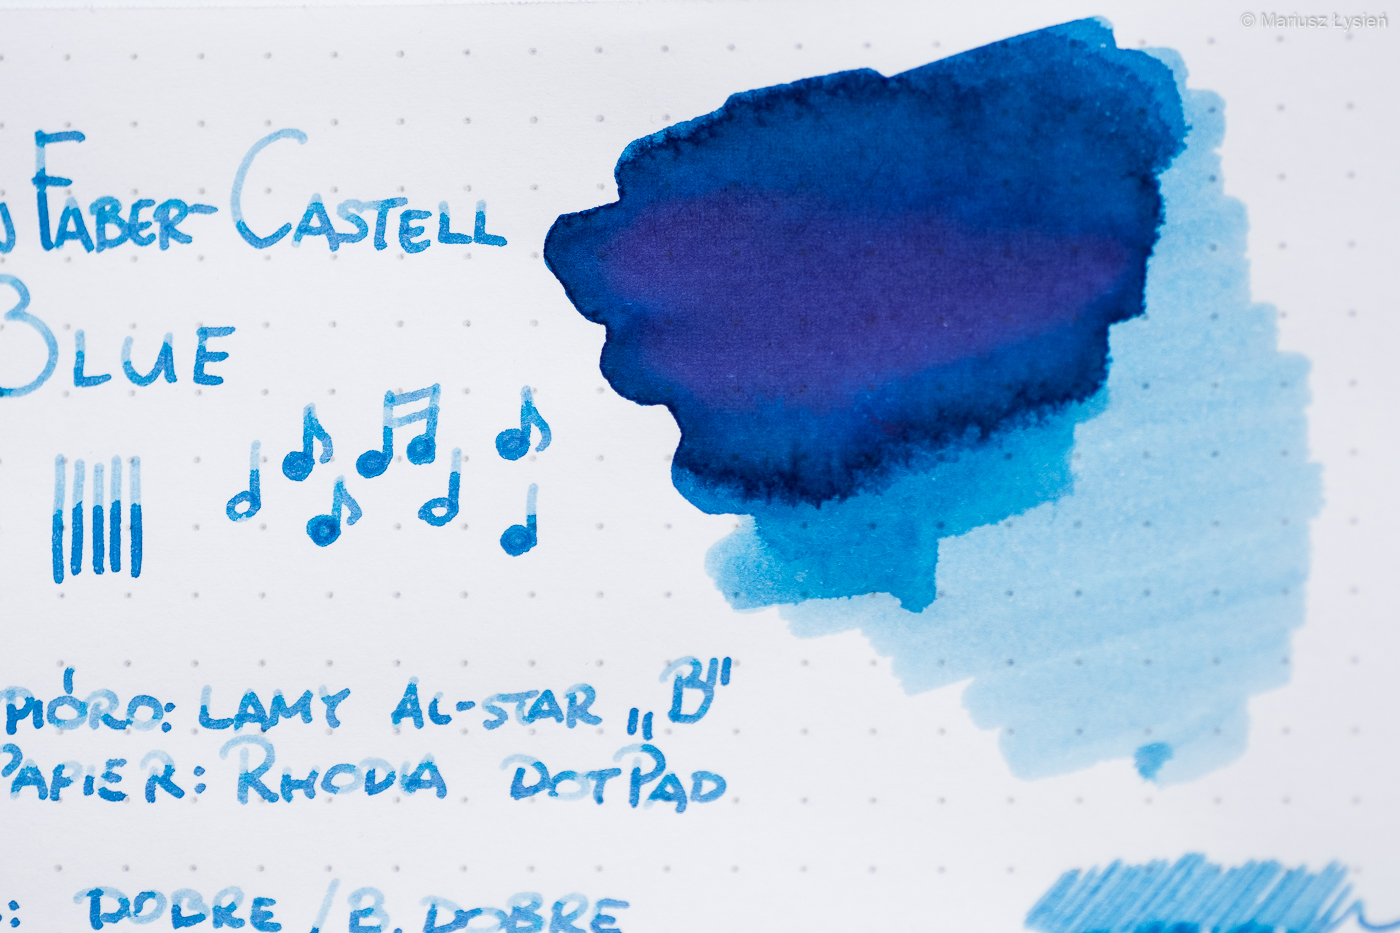 © Mariusz Łysień
Faber-Castell
Blue
Pióro: Lamy Al-Star „B"
Papier: Rhodia DotPad
: Dobre / B. Dobre